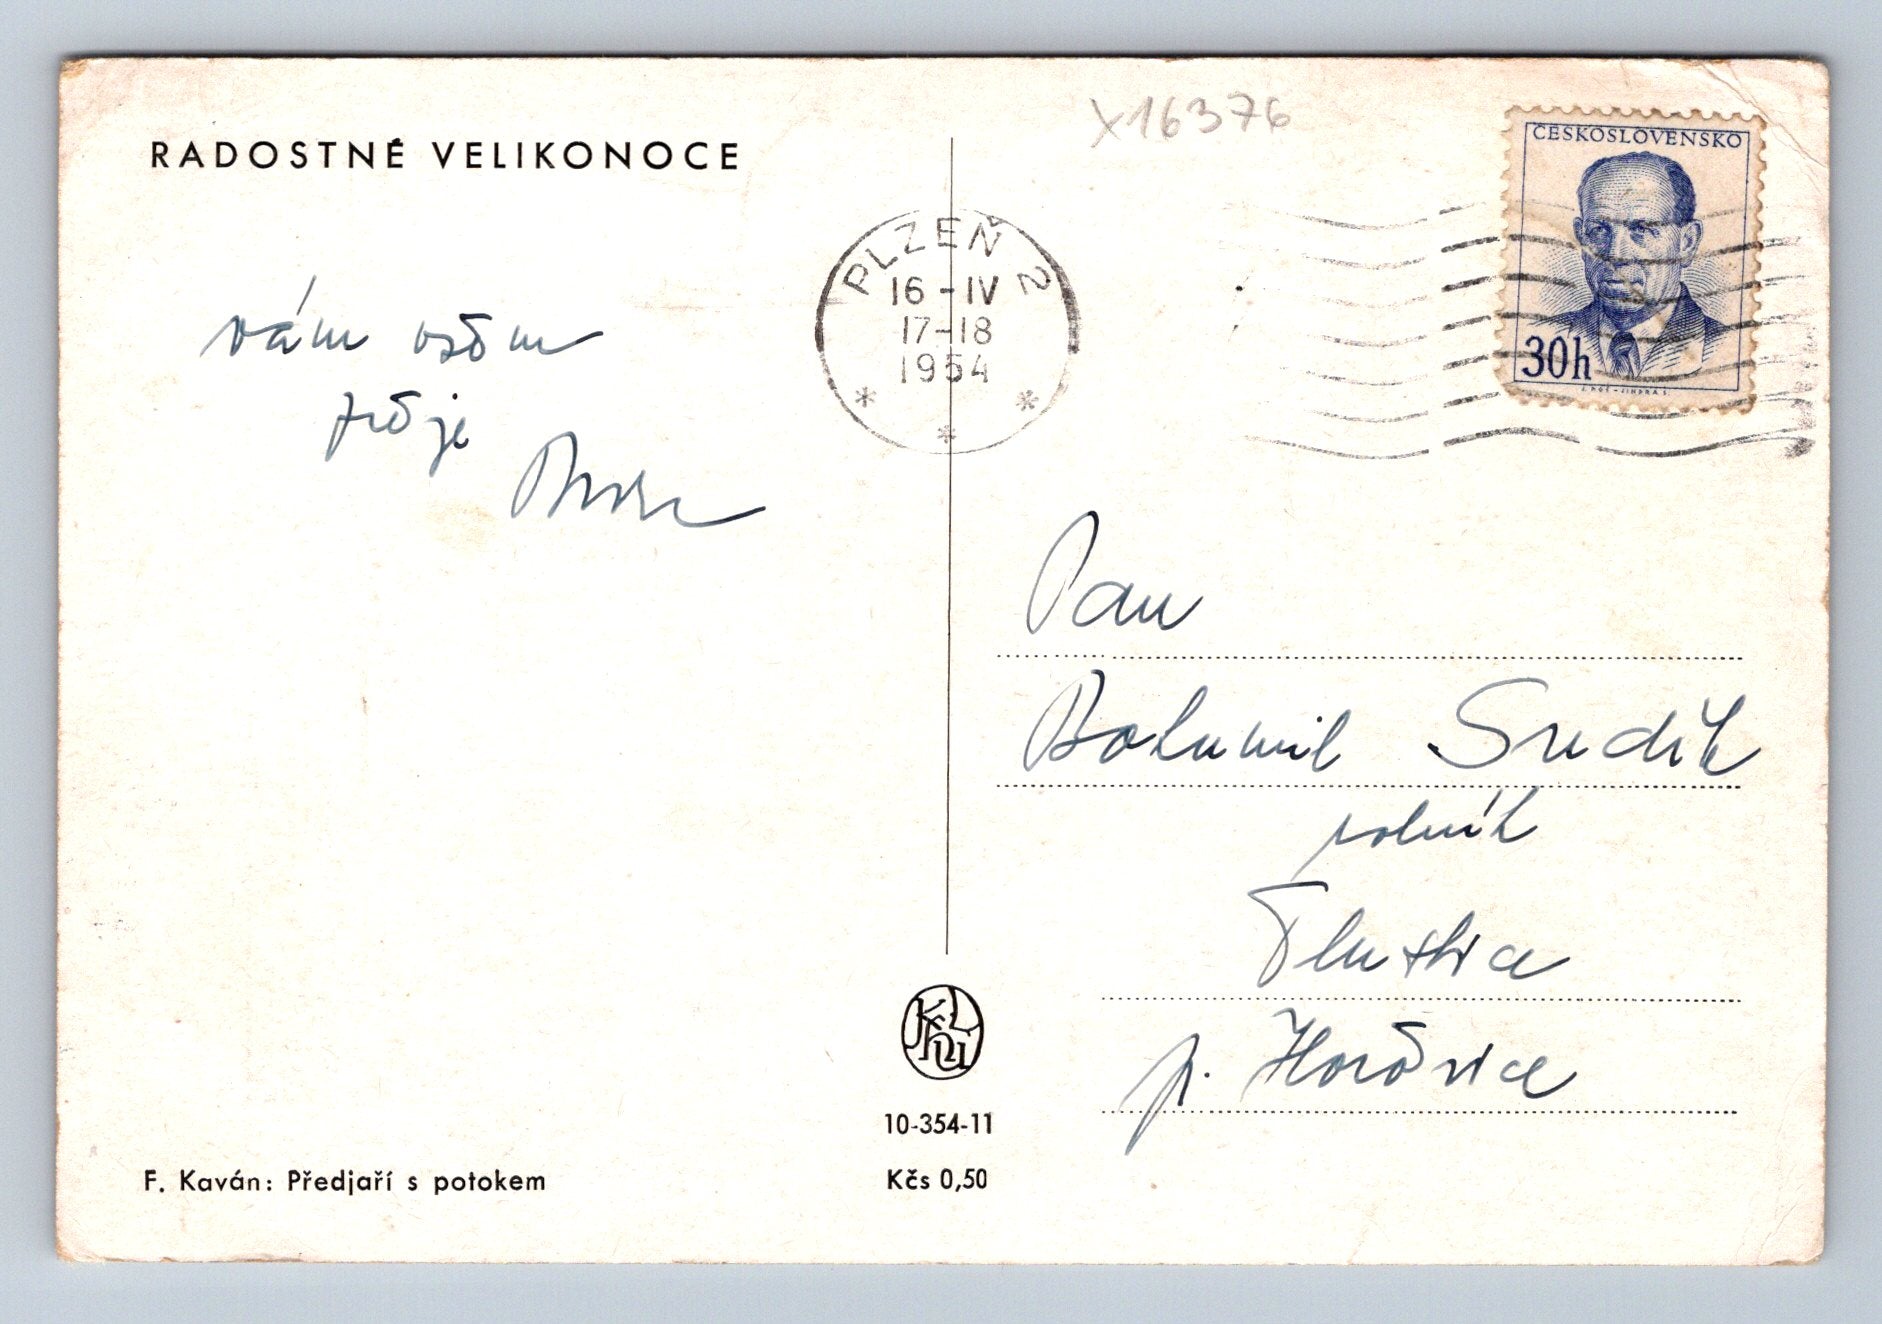 RADOSTNÉ VELIKONOCE
vám všem
přeje
X16376
ČESKOSLOVENSKO
30h
PLZEŇ 2
16-IV
17-18
1954
Pan
Bohumil
rolník
p. Hořovice
10-354-11
Kčs 0,50
F. Kaván: Předjaří s potokem